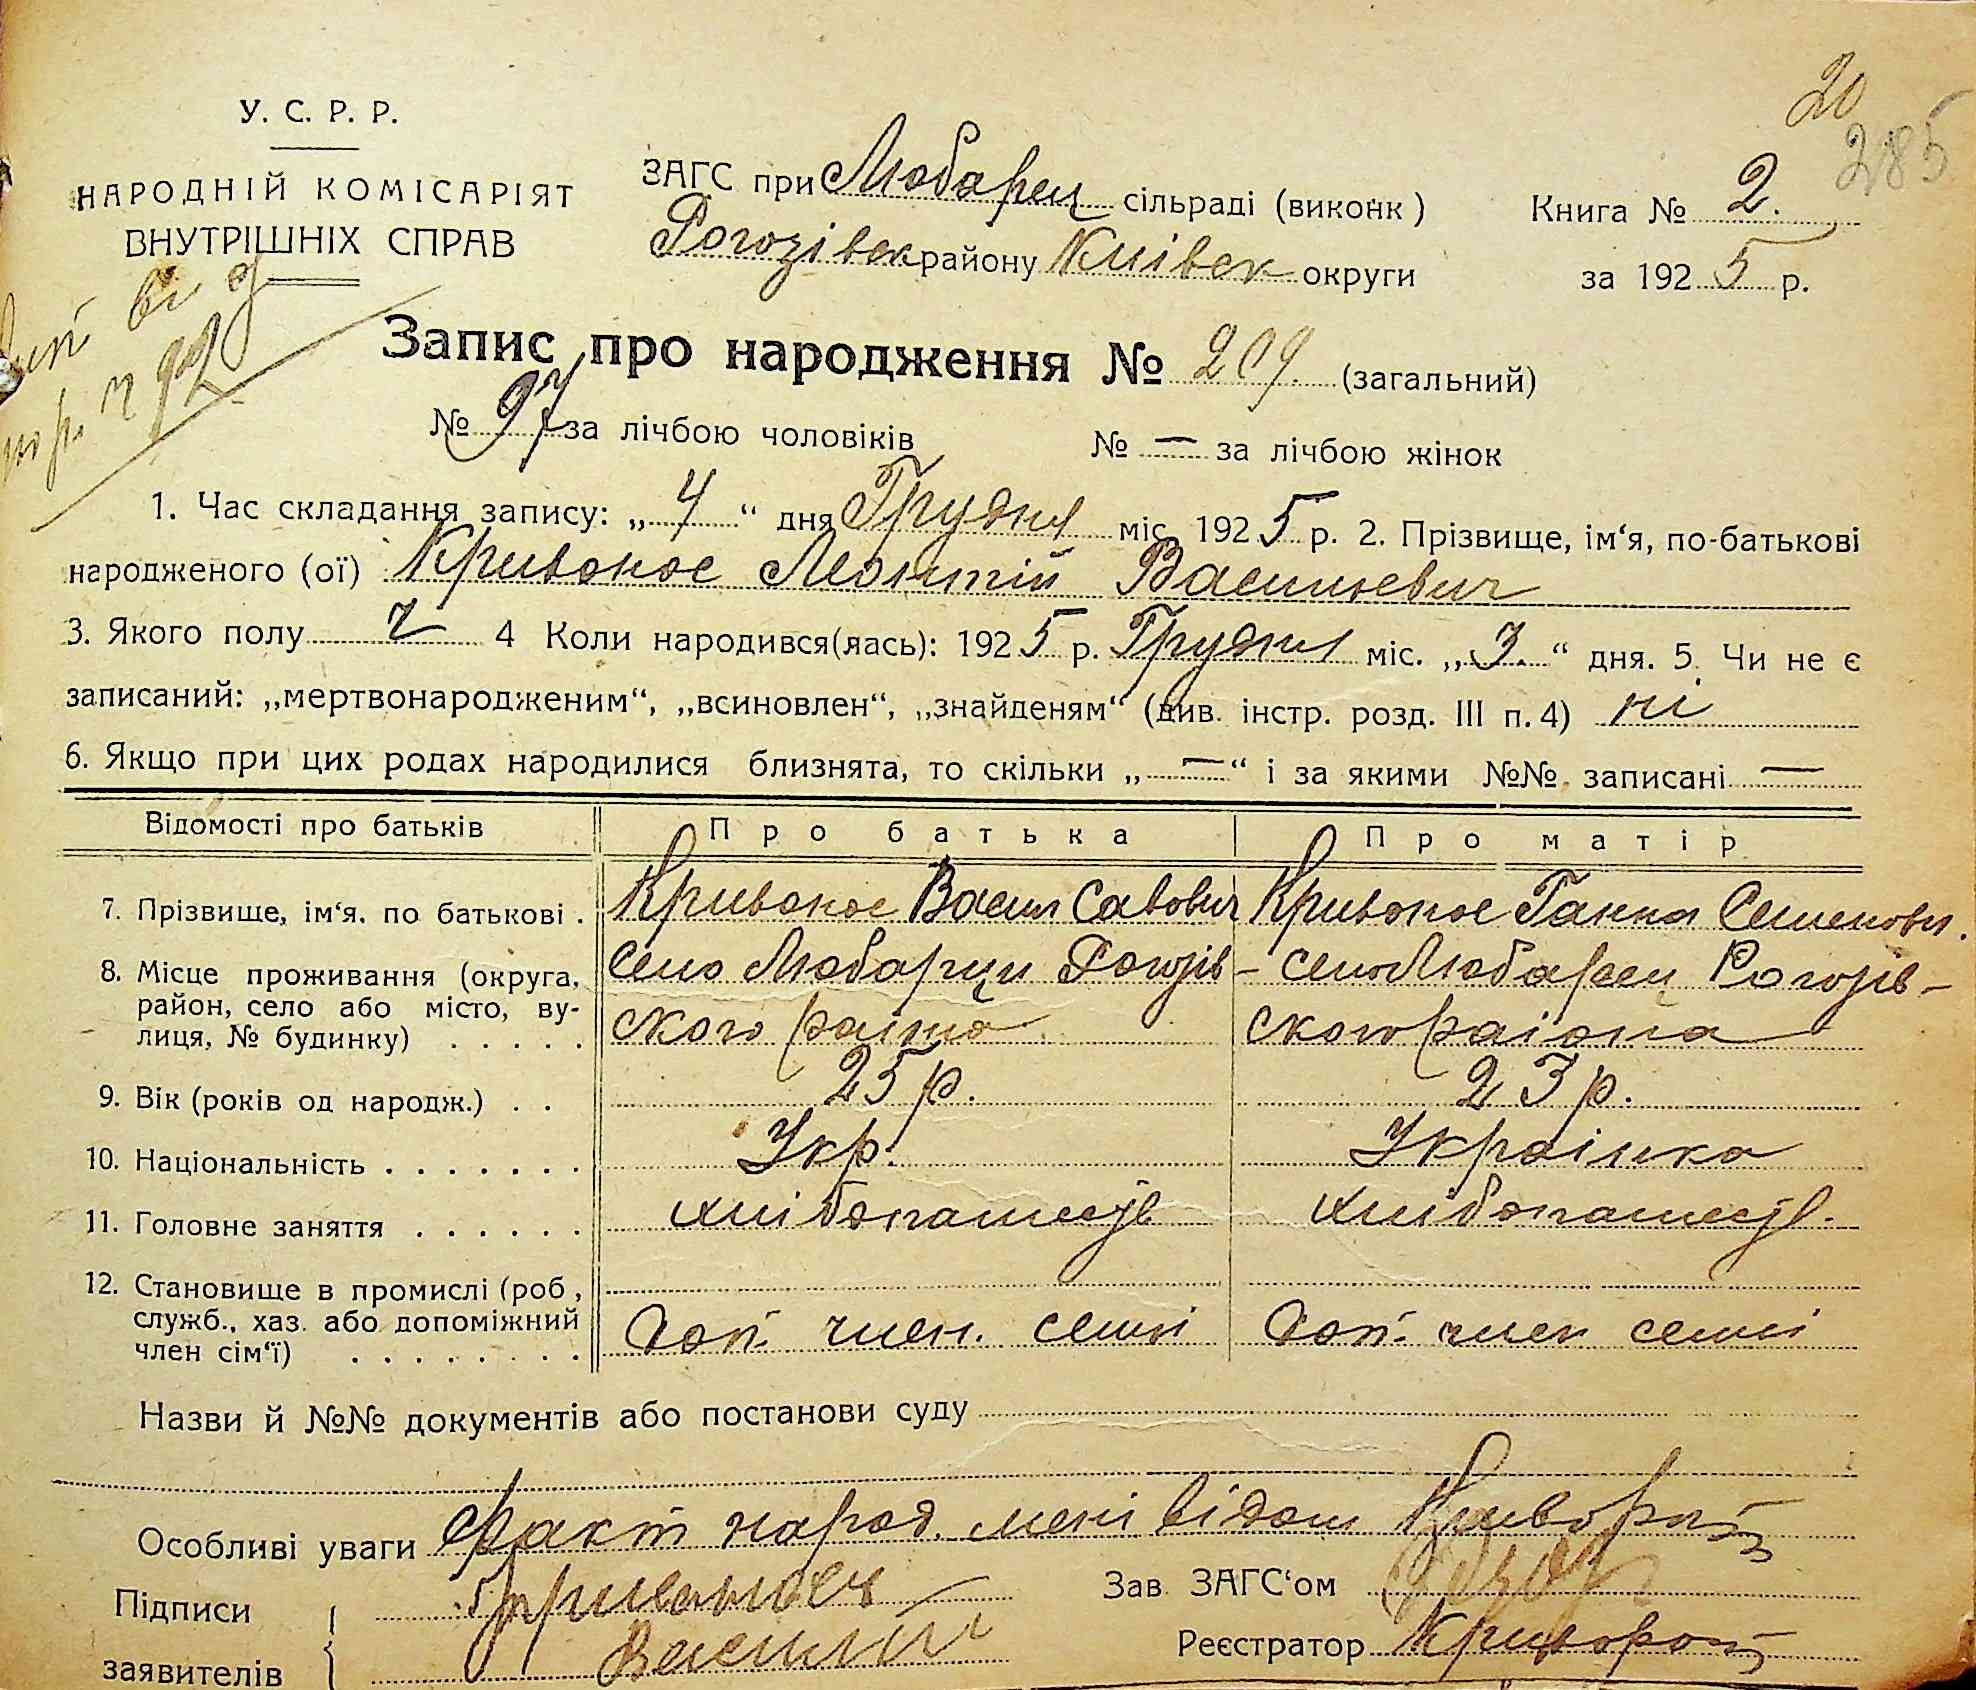 20
285
У. С. Р. Р.
НАРОДНІЙ КОМІСАРІЯТ
ВНУТРІШНІХ СПРАВ
ЗАГС при Любарец сільраді (виконк)
Рогозівск району Київск округи
Книга № 2.
за 1925 р.
Запис про народження № 209. (загальний)
№ 97 за лічбою чоловіків № — за лічбою жінок
1. Час складання запису: „4“ дня Грудня міс. 1925 р. 2. Прізвище, ім‘я, по-батькові
народженого (ої) Кривонос Леонтій Васильевич
3. Якого полу ч 4 Коли народився(лась): 1925 р. Грудня міс. „3.“ дня. 5. Чи не є
записаний: „мертвонародженим“, „всиновлен“, „знайденям“ (див. інстр. розд. III п. 4) ні
6. Якщо при цих родах народилися близнята, то скільки „—“ і за якими №№ записані —
Відомості про батьків Про батька Про матір
7. Прізвище, ім‘я. по батькові . Кривонос Васил Савович Кривонос Ганна Семеновн.
8. Місце проживання (округа, село Любарци Рогозів- село Любарец Рогозів-
район, село або місто, ву-
лиця, № будинку) . . . . . ского раіона ского раіона
9. Вік (років од народж.) . . 25 р. 23 р.
10. Національність . . . . . . . Укр. Украінка
11. Головне заняття . . . . . . хлібопашеств хлібопашеств.
12. Становище в промислі (роб,
служб., хаз. або допоміжний Доп. член. семьі Доп. член семьі
член сім‘ї) . . . . . . . .
Назви й №№ документів або постанови суду
Особливі уваги Факт народ. мені відом Криворот
Підписи Кривонос Зав. ЗАГС‘ом
заявителів Василий Реєстратор Криворот